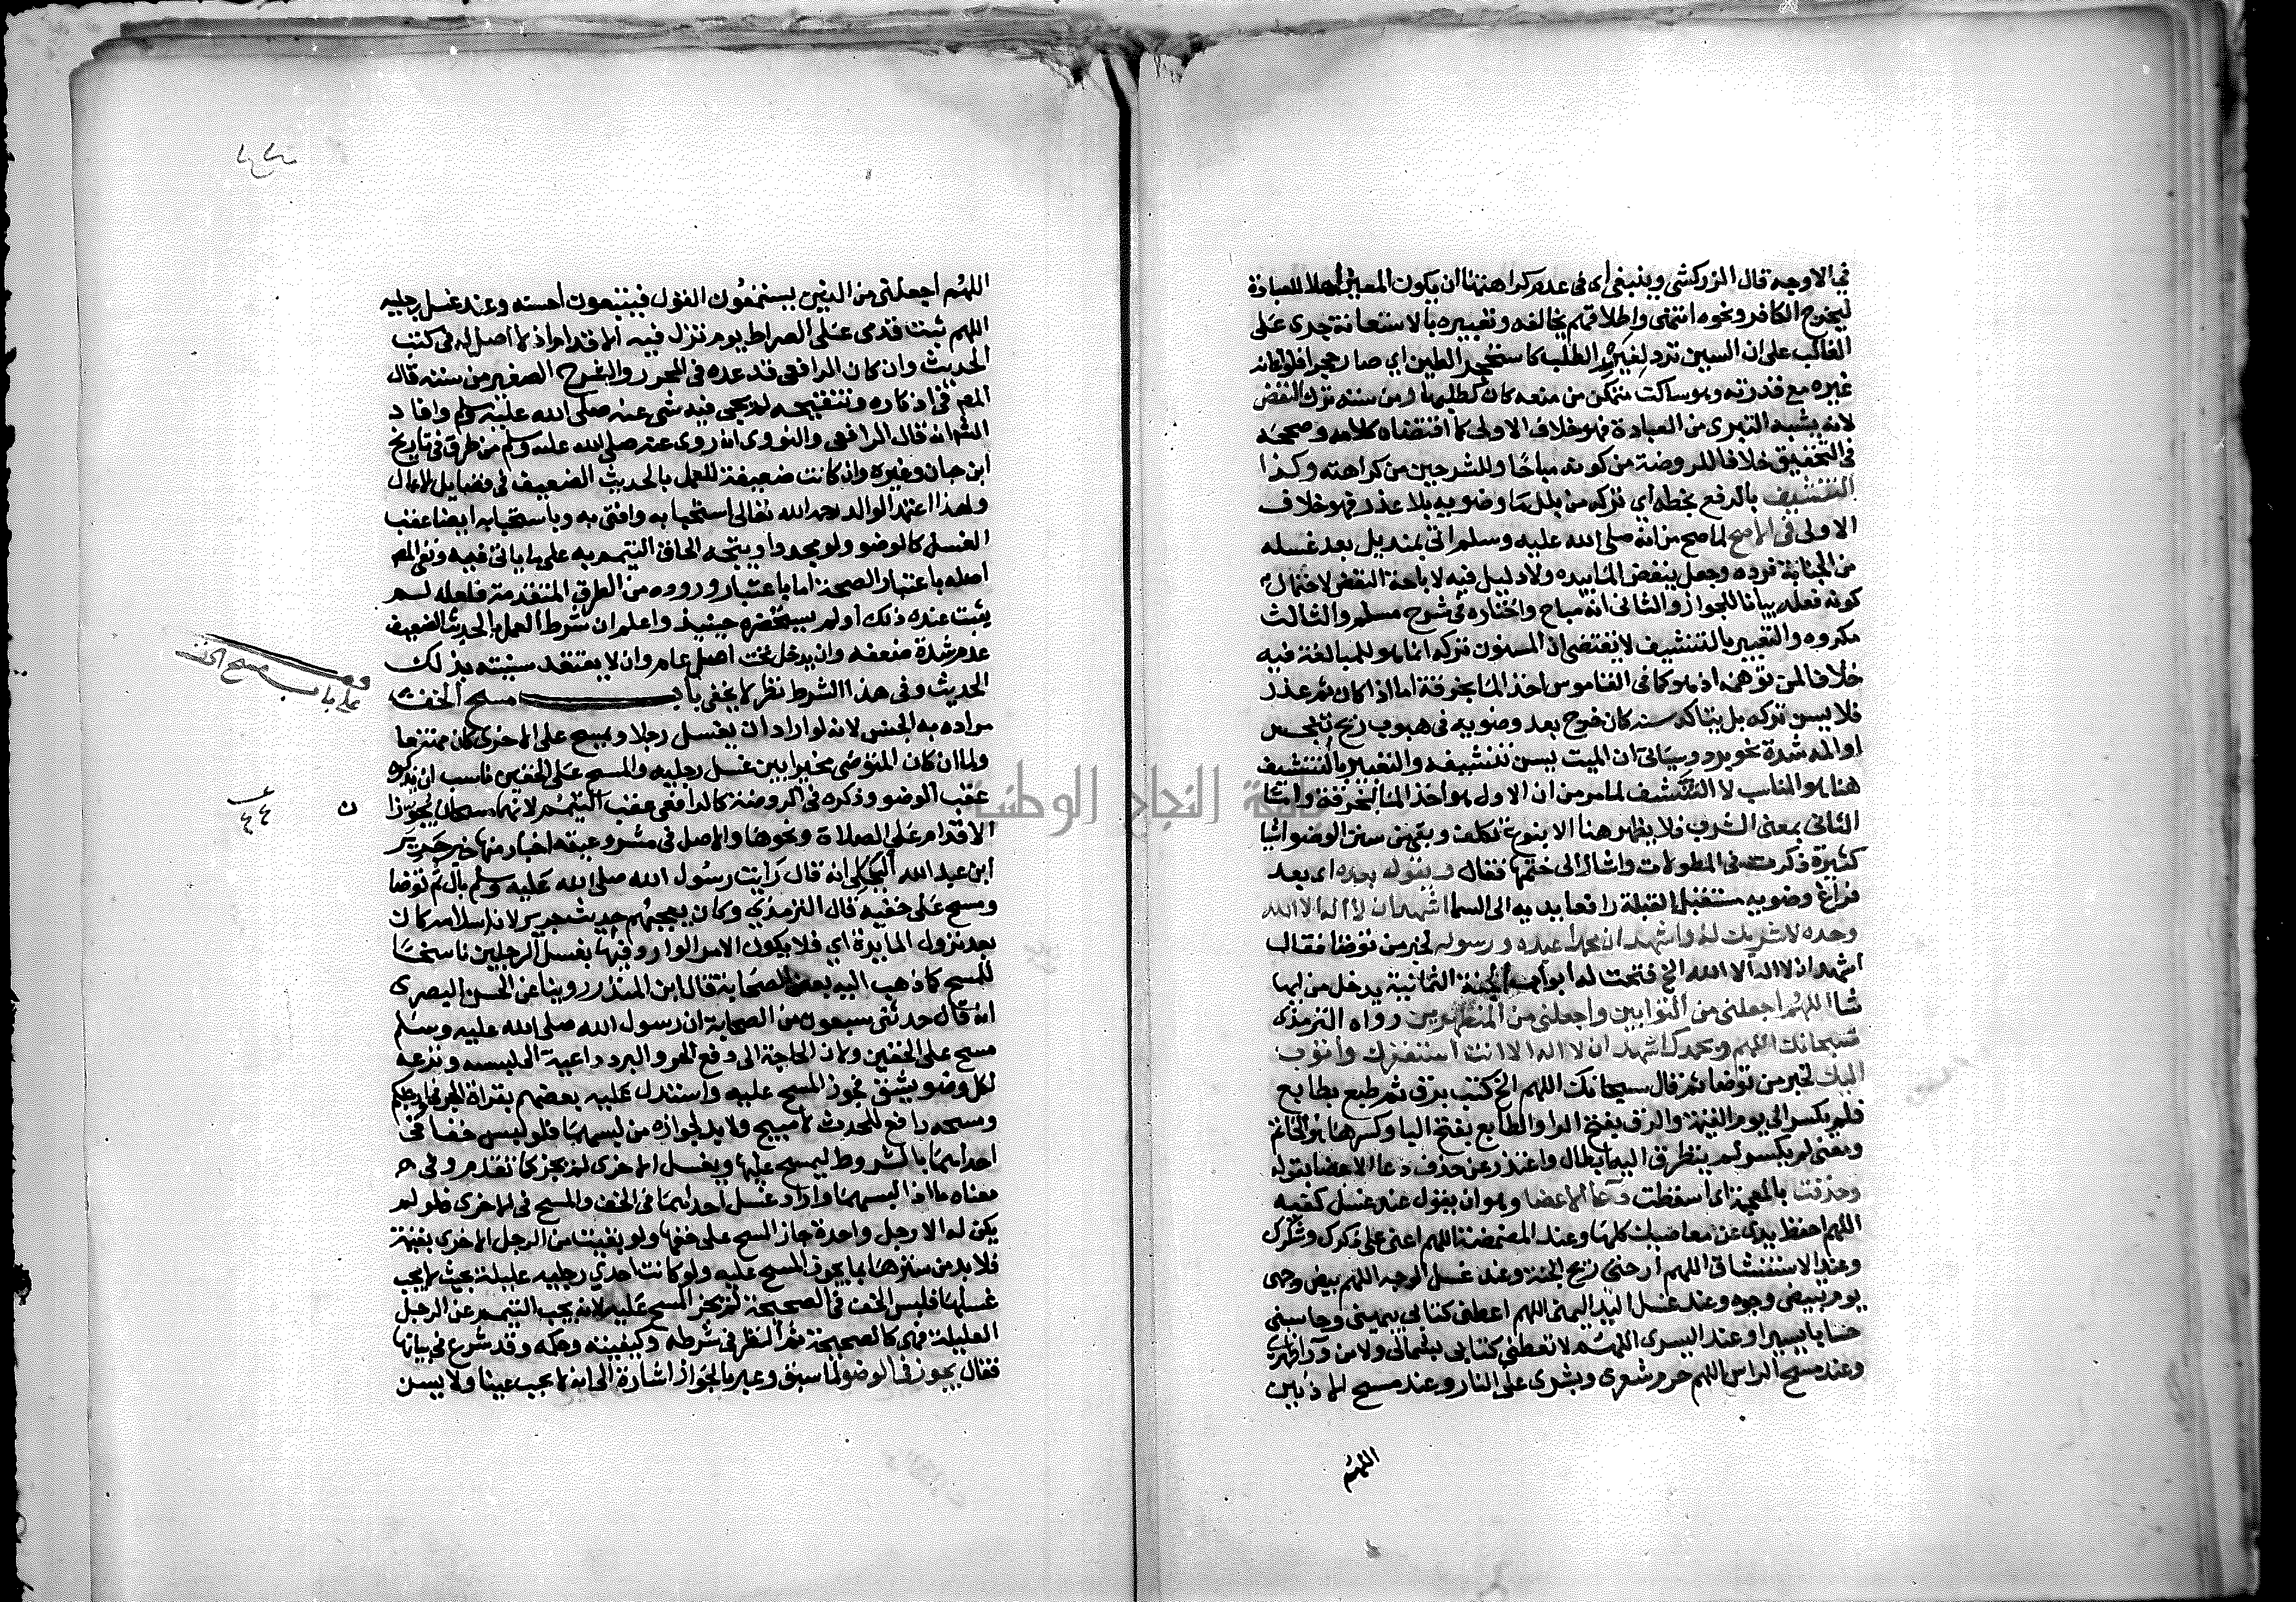 في الاوجه قال الزركشي وينبغي اي في عدم كراهتها ان يكون المعين اهلا للعبادة
ليخرج الكافر ونحوه انتهى واطلاقهم يخالفه وتعبيره بالاستعانة جرى على
الغالب على ان السين ترد لغير الطلب كاستحجر الطين اي صار حجرا فلو اعانه
غيره مع قدرته وهو ساكت متمكن من منعه كان كطلبها ومن سننه ترك النفض
لانه يشبه التبري من العبادة فهو خلاف الاولى كما اقتضاه كلامه وصححه
في التحقيق خلافا للروضة من كونه مباحا وللشرحين من كراهته وكذا
التنشيف بالرفع بخطه اي تركه من بلل ما وضويه بلا عذر فهو خلاف
الاولى في الاصح لما صح من انه صلى الله عليه وسلم اتي بمنديل بعد غسله
من الجنابة فرده وجعل ينفض الما بيده ولا دليل فيه لاباحة النفض لاحتمال
كونه فعله بيانا للجواز والثاني انه مباح واختاره في شرح مسلم والثالث
مكروه والتعبير بالتنشيف لا يقتضي ان المسنون تركه انما هو للمبالغة فيه
خلافا لمن توهمه اذ هو كما في القاموس اخذ الما بخرقة اما اذا كان ثم عذر
فلا يسن تركه بل يتاكد سنه كان خرج بعد وضويه في هبوب ريح بنجس
او المه شدة نحو برد وسياتي ان الميت يسن تنشيفه والتعبير بالتنشيف
هنا هو المناسب لا التنشف لما مر من ان الاول هو اخذ الما بخرقة واما
الثاني بمعنى الشرب فلا يظهر هنا الا بنوع تكلف وبقي من سنن الوضو اشيا
كثيرة ذكرت في المطولات واشار الى ختمها فقال ويقول بعده اي بعد
فراغ وضويه مستقبل القبلة رافعا يديه الى السما اشهد ان لا اله الا الله
وحده لا شريك له واشهد ان محمدا عبده ورسوله لخبر من توضا فقال
اشهد ان لا اله الا الله الخ فتحت له ابواب الجنة الثمانية يدخل من ايها
شا اللهم اجعلني من التوابين واجعلني من المتطهرين رواه الترمذي
سبحانك اللهم وبحمدك اشهد ان لا اله الا انت استغفرك واتوب
اليك لخبر من توضا ثم قال سبحانك اللهم الخ كتب برق ثم طبع بطابع
فلم يكسر الى يوم القيمة والرق بفتح الرا والطابع بفتح البا وكسرها هو الخاتم
ومعنى لم يكسر لم يتطرق اليه ابطال واعتذر عن حذف دعا الاعضا بقوله
وحذفت بالمعجمة اي اسقطت دعا الاعضا وهو ان يقول عند غسل كفيه
اللهم احفظ يدي عن معاصيك كلها وعند المضمضة اللهم اعني على ذكرك وشكرك
وعند الاستنشاق اللهم ارحني ريح الجنة وعند غسل الوجه اللهم بيض وجهي
يوم تبيض وجوه وعند غسل اليد اليمنى اللهم اعطني كتابي بيميني وحاسبني
حسابا يسيرا وعند اليسرى اللهم لا تعطني كتابي بشمالي ولا من ورا ظهري
وعند مسح الراس اللهم حرم شعري وبشري على النار وعند مسح الاذنين
اللهم
اللهم اجعلني من الذين يستمعون القول فيتبعون احسنه وعند غسل رجليه
اللهم ثبت قدمي على الصراط يوم تزل فيه الاقدام اذ لا اصل له في كتب
الحديث وان كان الرافعي قد عده في المحرر والشرح الصغير من سننه قال
المص في اذكاره وتنقيحه لم يجي فيه شي عنه صلى الله عليه وسلم وافاد
الشارح انه قال الرافعي والنووي انه روي عنه صلى الله عليه وسلم من طرق في تاريخ
ابن حبان وغيره وان كانت ضعيفة للعمل بالحديث الضعيف في فضايل الاعمال
ولهذا اعتمد الوالد رحمه الله تعالى استحبابه وافتى به وباستحبابه ايضا عقب
الغسل كالوضو ولو مجددا ويتجه الحاق التيمم به على ما ياتي فيه ونفي المص
اصله باعتبار الصحة اما باعتبار وروده من الطرق المتقدمة فلعله لم
يثبت عنده ذلك او لم يستحضره حينيذ واعلم ان شرط العمل بالحديث الضعيف
عدم شدة ضعفه وان يدخل تحت اصل عام وان لا يعتقد سنيته بذلك
الحديث وفي هذا الشرط نظر لا يخفى باب مسح الخف
مراده به الجنس لانه لو اراد ان يغسل رجلا ويمسح على الاخرى كان ممتنعا
ولما ان كان المتوضي مخيرا بين غسل رجليه والمسح على الخفين ناسب ان يذكره
عقب الوضو وذكره في الروضة كالرافعي عقب التيمم لانهما مسحان يجوزا
الاقدام على الصلاة ونحوها والاصل في مشروعيته اخبار منها خبر جرير
ابن عبد الله البجلي انه قال رايت رسول الله صلى الله عليه وسلم بال ثم توضا
ومسح على خفيه قال الترمذي وكان يعجبهم حديث جرير لان اسلامه كان
بعد نزول المايدة اي فلا يكون الامر الوارد فيها بغسل الرجلين ناسخا
للمسح كما ذهب اليه بعض الصحابة قال ابن المنذر روينا عن الحسن البصري
انه قال حدثني سبعون من الصحابة ان رسول الله صلى الله عليه وسلم
مسح على الخفين ولان الحاجة الى دفع الحر والبرد داعية الى لبسه ونزعه
لكل وضو يشق فجوز المسح عليه واستدل عليه بعضهم بقراة الجر في وارجلكم
ومسحه رافع للحدث لا مبيح ولا بد لجوازه من لبسهما فلو لبس خفا في
احداهما بالشروط ليمسح عليها ويغسل الاخرى لم يجز كما تقدم وفي
معناه ما اذا لبسهما واراد غسل احداهما في الخف والمسح في الاخرى فلو لم
يكن له الا رجل واحدة جاز المسح على خفها ولو بقيت من الرجل الاخرى بقية
فلا بد من سترها بما يجوز المسح عليه ولو كانت احدي رجليه عليلة بحيث لا يجب
غسلها فلبس الخف في الصحيحة لم يجز المسح عليه لانه يجب التيمم عن الرجل
العليلة فهي كالصحيحة ثم النظر في شرطه وكيفيته وحكمه وقد شرع في بيانها
فقال يجوز في الوضو لما سبق وعبر بالجواز اشارة الى انه لا يجب عينا ولا يسن
على باب مسح الخف
جامعة النجاح الوطنية